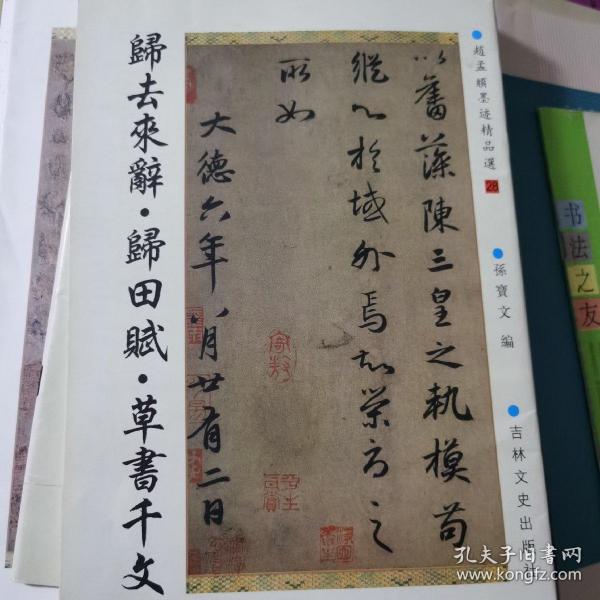 歸去來辭·歸田賦·草書千文
以奮藻陳三皇之執模苟
縱心於域外焉知榮辱之
所如
大德六年八月廿有二日
趙孟頫墨迹精品選 28
孫寶文 編
吉林文史出版社
书法之友
孔夫子旧书网
www.kongfz.com